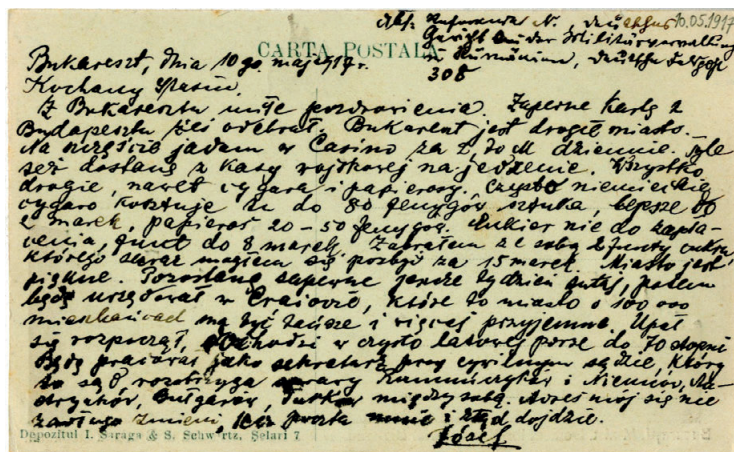 Abs. Referendar N., Deutsches 10.05.1917
Gericht bei der Militärverwaltung
in Rumänien, Deutsche Feldpost
308
CARTA POSTALA
Bukareszt, dnia 10 go maja 1917 r.
Kochany
Z Bukaresztu miłe pozdrowienia. Zapewne kartę z
Budapesztu żeś odebrał. Bukareszt jest drogie miasto.
Na szczęście jadam w Casino za 2,70 M dziennie. Tyle
też dostanę z kasy wojskowej na jedzenie. Wszystko
drogie, nawet cygara i papierosy. Czysto niemieckie
cygaro kosztuje tu do 80 fenygów sztuka, lepsze do
2 marek, papieros 20-50 fenygów. Cukier nie do zapła-
cenia, funt do 8 marek. Zabrałem ze sobą 2 funty cukru,
którego zaraz mogłem się pozbyć za 15 marek. Miasto jest
piękne. Pozostanę zapewne jeszcze tydzień tutej, potem
będę urzędował w Craiovie, które to miasto o 100 000
mieszkańcach ma być tańsze i więcej przyjemne. Upał
się rozpoczął, dochodzi w czysto latowej porze do 70 stopni
Będę pracował jako sekretarz przy cywilnym sądzie, który
to sąd rozstrzyga sprawy Rumuńczyków i Niemców, Au-
stryjaków, Bułgarów, Turków między sobą. Adres mój się nie
zadługo zmieni, lecz poczta mnie i stąd dojdzie.
Józef
Depozitul I. Saraga & S. Schwartz, Selari 7